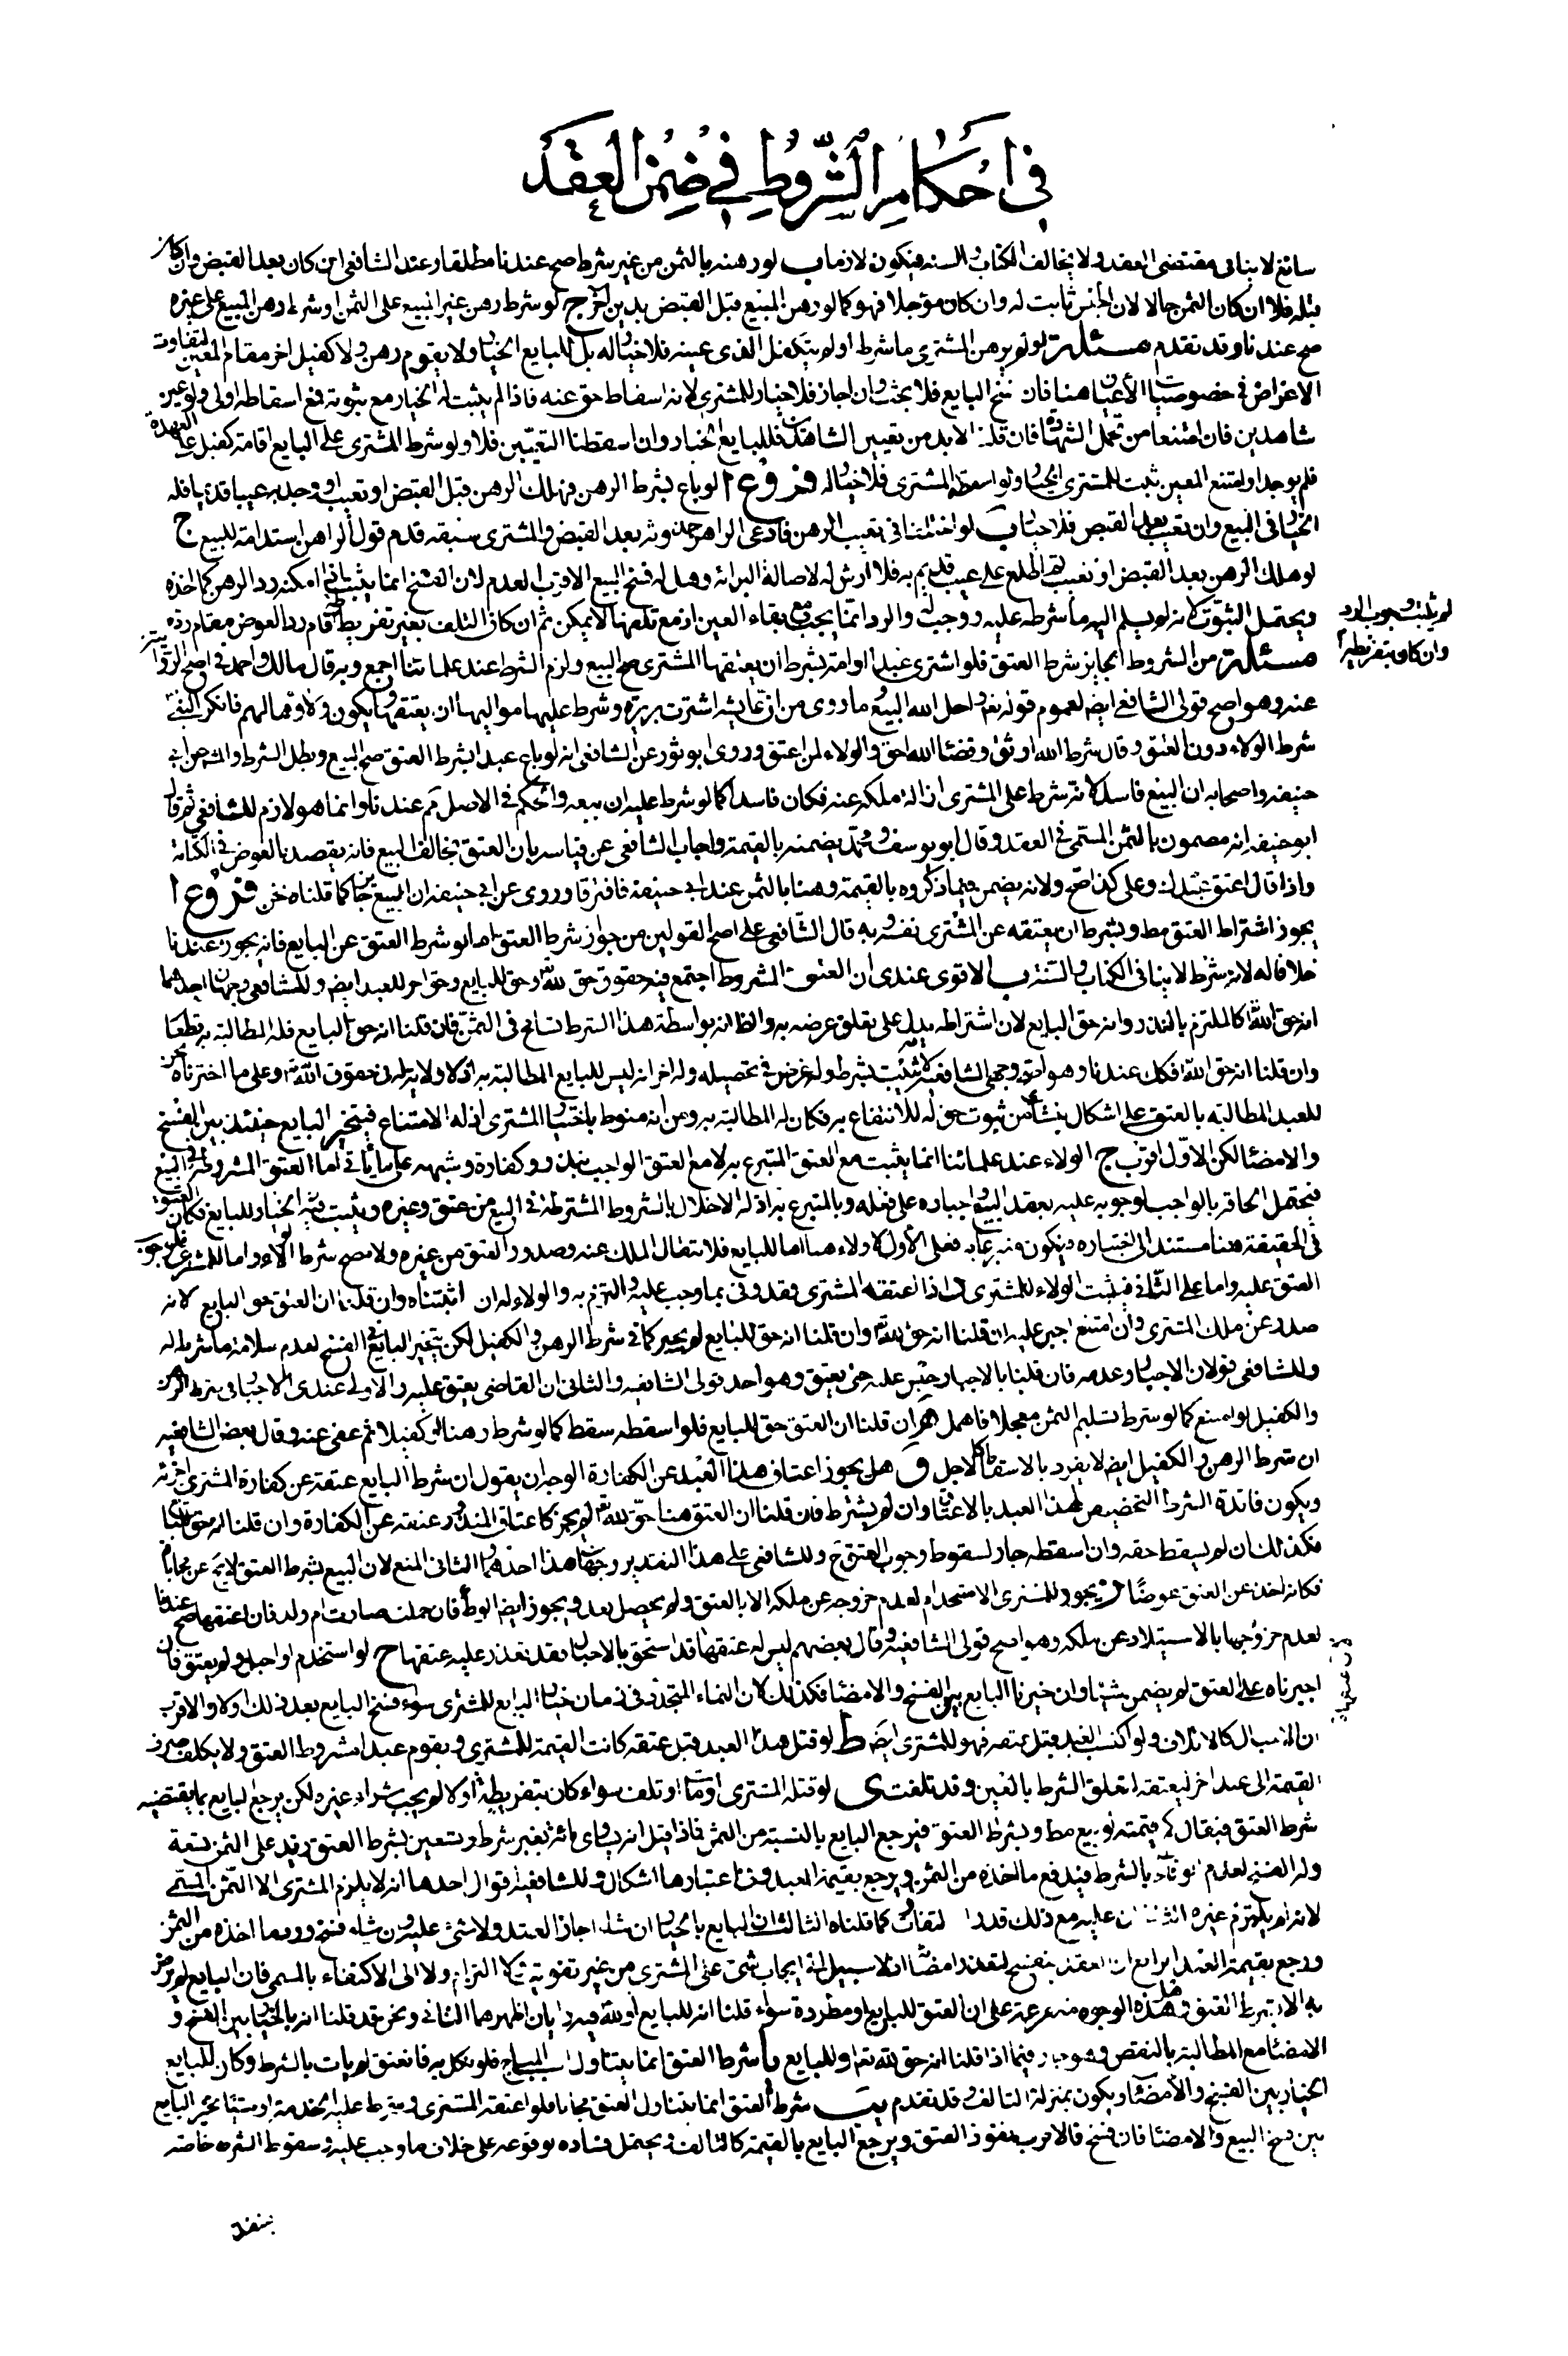 في احكام الشروط في ضمن العقد
سائغ لا ينافى مقتضى العقد ولا يخالف الكتاب والسنه فيكون لازما ب لو رهنه بالثمن من غير شرط صح عندنا مطلقا وعند الشافعى ان كان بعد القبض وان كان
قبله فلا ان كان الثمن حالا لان الحبس ثابت له وان كان مؤجلا فهو كما لو رهن المبيع قبل القبض بدين اخر ج لو شرط رهن غير المبيع على الثمن او شرط رهن المبيع على غيره
صح عندنا وقد تقدم مسئلة لو لم يرهن المشترى ما شرط او لم يتكفل الذى عينه فلا خيار له بل للبايع الخيار ولا يقوم رهن ولا كفيل اخر مقام المعين لتفاوت
الاغراض فى خصوصيات الأعيان هنا فان فسخ البايع فلا بحث وان اجاز فلا خيار للمشترى لانه اسقاط حق عنه فاذا لم يثبت له الخيار مع ثبوته فمع اسقاطه اولى ولو عين
شاهدين فان امتنعا من تحمل الشهادة فان قلنا لابد من تعيين الشاهدين فللبايع الخيار وان اسقطنا التعيين فلا ولو شرط المشترى على البايع اقامة كفيل على العهدة
فلم يوجد او امتنع المعين ثبت للمشترى الخيار ولو اسقطه المشترى فلا خيار له فروع ا لو باع بشرط الرهن فهلك الرهن قبل القبض او تعيب او وجد به عيبا قديما فله
الخيار فى المبيع وان تعيب بعد القبض فلا خيار ب لو اختلفنا فى تعيب الرهن فادعى الراهن حدوثه بعد القبض والمشترى سبقه قدم قول الراهن استدامة للبيع ج
لو هلك الرهن بعد القبض او تعيب ثم اطلع على عيب قديم به فلا ارش له لاصالة البراءه وهل له فسخ البيع الاقرب العدم لان الفسخ انما يثبت اذا امكنه رد الرهن كما اخذه
ويحتمل الثبوت لانه لم يسلم اليه ما شرطه عليه ووجب والرد انما يجب مع بقاء العين اذ مع تلفها لا يمكن ثم ان كان التلف بغير تفريطه اقام رد العوض مقام رده
لم يثبت وجوب الرد
وان كان بتفريطه
مسئلة من الشروط الجايز شرط العتق فلو اشترى عبدا او امة بشرط ان يعتقها المشترى صح البيع ولزم الشرط عند علمائنا اجمع وبه قال مالك واحمد فى اصح الروايتين
عنه وهو اصح قولى الشافعى ايضا لعموم قوله تعالى واحل الله البيع وما روى من ان عايشه اشترت بريرة وشرط عليها مواليها ان يعتقها ويكون ولاؤها لهم فانكر النبي
شرط الولاء دون العتق وقال شرط الله اوثق وقضاء الله احق والولاء لمن اعتق وروى ابو ثور عن الشافعى انه لو باع عبدا بشرط العتق صح البيع وبطل الشرط والمشهور عن ابى
حنيفه واصحابه ان البيع فاسد لانه شرط على المشترى ازالة ملكه عنه فكان فاسدا كما لو شرط عليه ان يبيعه والحكم فى الاصل مم عندنا وانما هو لازم للشافعي ثم قال
ابو حنيفه انه مضمون بالثمن المسمى فى العقد وقال ابو يوسف ومحمد يضمنه بالقيمة واجاب الشافعى عن قياسه بان العتق يخالف البيع فانه يقصد بالعوض فى الكتابة
واذا قال اعتق عبدك وعلى كذا صح ولانه يضمن فيما ذكروه بالقيمة وهنا بالثمن عند ابى حنيفة فافترقا وروى عن ابى حنيفه ان البيع جائز كما قلناه نحن فروع ا
يجوز اشتراط العتق مط وبشرط ان يعتقه عن المشترى نفسه وبه قال الشافعى على اصح القولين من جواز شرط العتق اما لو شرط العتق عن البايع فانه يجوز عندنا
خلافا له لانه شرط لا ينافى الكتاب والسنة ب الاقوى عندى ان العتق المشروط اجتمع فيه حقوق حق لله وحق للبايع وحق اخر للعبد ايضا وللشافعى وجهان احدهما
انه حق الله كالملتزم بالنذر وانه حق البايع لان اشتراطه يدل على تعلق غرضه به والظ انه بواسطة هذا الشرط تسامح فى الثمن فان قلنا انه حق البايع فله المطالبة به قطعا
وان قلنا انه حق الله فكك عندنا وهو احد وجهى الشافعيه لانه ثبت بشرطه وله غرض فى تحصيله وله اخر انه ليس للبايع المطالبة به اذ لا ولاية له فى حقوق الله وعلى ما اخترناه من
للعبد المطالبة بالعتق على اشكال ينشأ من ثبوت حق له للانتفاع به فكان له المطالبة به ومن انه منوط باختيار المشترى اذ له الامتناع فيتخير البايع حينئذ بين الفسخ
والامضاء لكن الاول اقرب ج الولاء عند علمائنا انما يثبت مع العتق المتبرع به لا مع العتق الواجب بنذر وكفارة وشبهه على ما يأتى اما العتق المشروط فى البيع
فيحتمل الحاقه بالواجب لوجوبه عليه بعقد البيع واجباره على فعله وبالمتبرع به اذ له الاخلال بالشروط المشترطة فى البيع من عتق وغيره ويثبت فيه الخيار للبايع فكان العتق
فى الحقيقة هنا مستندا الى اختياره فيكون متبرعا به فعلى الأول لا ولاء هنا اما للبايع فلانتقال الملك عنه وصدور العتق من غيره ولا يصح شرط الولاء واما للمشترى فلوجوب
العتق عليه واما على الثانى فيثبت الولاء للمشترى د اذا اعتقه المشترى فقد وفى بما وجب عليه والتزم به والولاء له ان اثبتناه وان قلنا ان العتق حق البايع لانه
صدر عن ملك المشترى وان امتنع اجبر عليه ان قلنا انه حق لله وان قلنا انه حق للبايع لم يجبر كما فى شرط الرهن والكفيل لكن يتخير البايع فى الفسخ لعدم سلامة ما شرطه له
وللشافعى قولان الاجبار وعدمه فان قلنا بالاجبار حبس عليه حتى يعتق وهو احد قولى الشافعيه والثانى ان القاضى يعتق عليه والاولى عندى الاجبار فى شرط الرهن
والكفيل لو امتنع كما لو شرط تسليم الثمن معجلا فاهمل ه ان قلنا ان العتق حق للبايع فلو اسقطه سقط كما لو شرط رهنا او كفيلا ثم عفى عنه وقال بعض الشافعيه
ان شرط الرهن والكفيل ايضا لا يفرد بالاسقاط كالاجل و هل يجوز اعتاق هذا العبد عن الكفارة الوجه ان يقول ان شرط البايع عتقه عن كفارة المشترى اجزئه
ويكون فائدة الشرط التخصيص لهذا العبد بالاعتاق وان لم يشترط فان قلنا ان العتق هنا حق لله تعالى لم يجز كاعتاق المنذور عتقه عن الكفارة وان قلنا انه حق للبايع
فكذلك ان لم يسقط حقه وان اسقطه جاز لسقوط وجوب العتق ح وللشافعى على هذا التقدير وجهان هذا احدهما والثانى المنع لان البيع بشرط العتق لا يخ عن محاباة
فكانه اخذ عن العتق عوضا ز يجوز للمشترى الاستخدام لعدم خروجه عن ملكه الا بالعتق ولم يحصل بعد ويجوز ايضا الوطى فان حملت صارت ام ولد فان اعتقها صح عندنا
لعدم خروجها بالاستيلاد عن ملكه وهو اصح قولى الشافعيه وقال بعضهم ليس له عتقها
اجبرناه على العتق لم يضمن شيئا وان خيرنا البايع بين الفسخ والامضاء فكذلك لان النماء المتجدد فى زمان خيار البايع للمشترى سواء فسخ البايع بعد ذلك اولا والاقرب
ان الاحبال كالاتلاف ولو اكتسب العبد قبل عتقه فهو للمشترى ايضا ط لو قتل هذا العبد قبل عتقه كانت القيمة للمشترى ويقوم عبدا مشروط العتق ولا يكلف صرف
القيمة الى عبد اخر ليعتقه لتعلق الشرط بالعين وقد تلفت ى لو قتله المشترى او مات او تلف سواء كان بتفريطه اولا لم يجب شراء غيره لكن يرجع البايع بما يقتضيه
شرط العتق فيقال كم قيمته لو بيع مط وبشرط العتق فيرجع البايع بالنسبة من الثمن فاذا قيل انه يساوى مائة بغير شرط وتسعين بشرط العتق زيد على الثمن تسعة
وله الفسخ لعدم الوفاء بالشرط فيدفع ما اخذه من الثمن ويرجع بقيمة العبد وفى اعتبارها اشكال وللشافعية اقوال احدها انه لا يلزم المشترى الا الثمن المسمى
لانه لم يلتزم غيره الثانى ان عليه مع ذلك قدر التفاوت كما قلناه الثالث ان البايع بالخيار ان شاء اجاز العقد ولا شئ عليه وان شاء فسخ ورد ما اخذه من الثمن
ورجع بقيمة العبد الرابع ان العقد ينفسخ لتعذر امضائه اذ لا سبيل الى ايجاب شئ على المشترى من غير تفويت ولا التزام ولا الى الاكتفاء بالمسمى فان البايع لم يرض
به الا بشرط العتق وهل هذه الوجوه متفرعة على ان العتق للبايع او مطردة سواء قلنا انه للبايع او لله فيه رايان اظهرهما الثانى ونحن قد قلنا انه بالخيار بين الفسخ و
الامضاء مع المطالبة بالنقص وهو جيد فيما اذا قلنا انه حق لله تعالى او للبايع يا شرط العتق انما يتناول السبب المباح فلو نكل به فانعتق لم يات بالشرط وكان للبايع
الخيار بين الفسخ والامضاء ويكون بمنزلة التالف وقد تقدم يب شرط العتق انما يتناول العتق مجانا فلو اعتقه المشترى وشرط عليه الخدمة او شيئا تخير البايع
بين فسخ البيع والامضاء فان فسخ فالاقرب نفوذ العتق ويرجع البايع بالقيمة كالتالف ويحتمل فساده لوقوعه على خلاف ما وجب عليه وسقوط الشرط خاصه
ينفذ